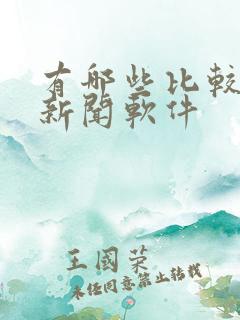 有哪些比較
新聞軟件
王國榮
未经同意禁止转载